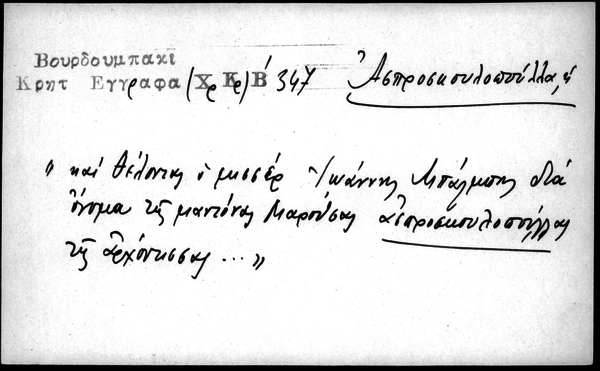 Βουρδουμπακι
Κρητ Εγγραφα (Χρ Κρ) Β΄ 347 Ἀσπροσκουλοπούλλα, ἡ
" καί θέλοντας ὁ μισσέρ Ἰωάννης Μπάλμπης διά
ὄνομα τῆς μαντόνας Μαρούσας ἀσπροσκουλοπούλλας
τῆς ἀρχόντισσας ... "